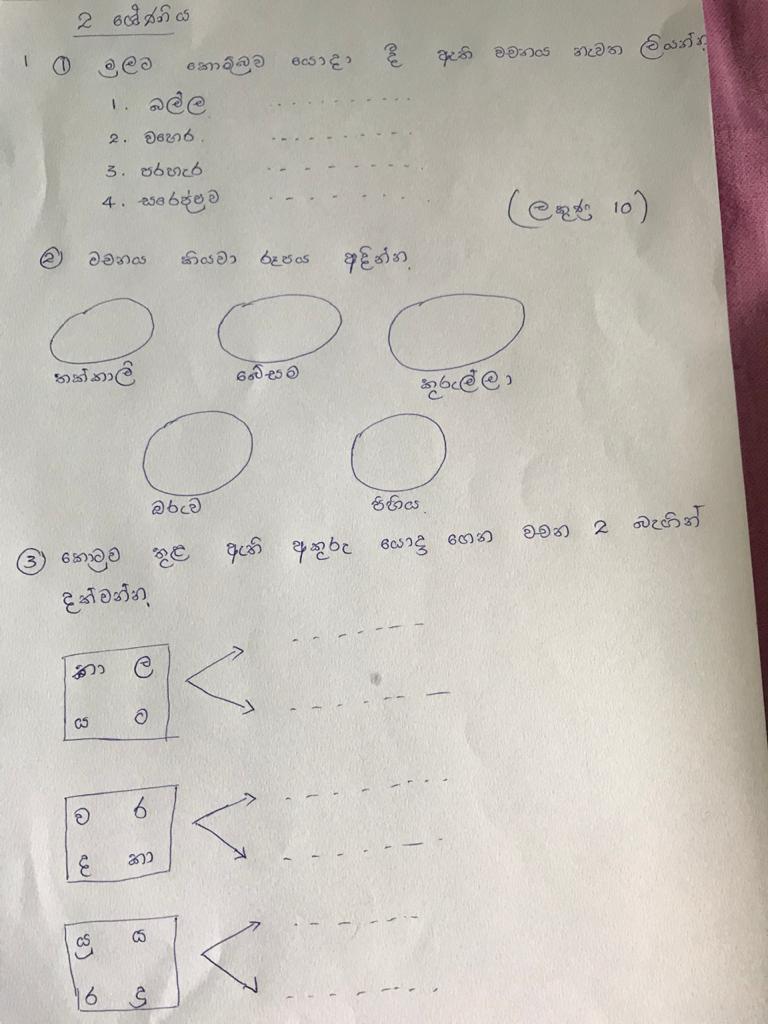 2 ශ්‍රේණිය
1 ① මුලට කොම්බුව යොදා දී ඇති වචනය නැවත ලියන්න.
1. බල්ල ..........
2. වහෙර. ..........
3. පරහැර ..........
4. සරෙප්පුව ..........
(ලකුණු 10)
② වචනය කියවා රූපය අදින්න.
තක්කාලි බේසම කුරුල්ලා
බරුව පිහිය.
③ කොටුව තුළ ඇති අකුරු යොදා ගෙන වචන 2 බැගින්
දක්වන්න.
කා ල
ය ට
ව ර
ද කා
යු ය
ර දු